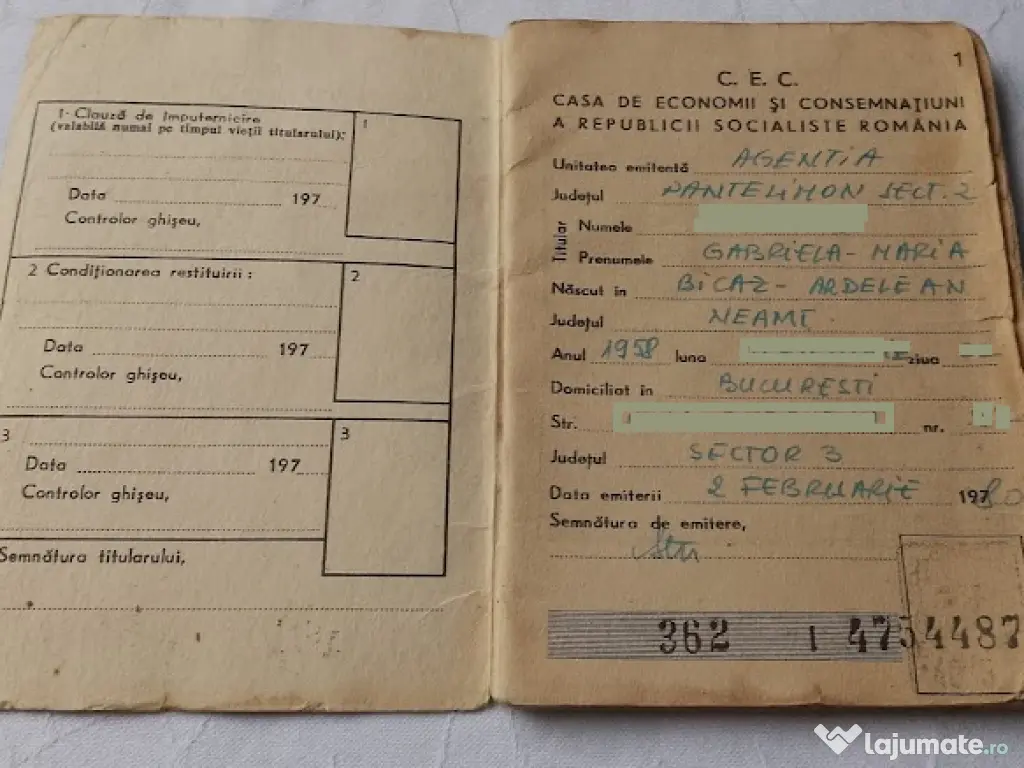 1. Clauză de împuternicire
(valabilă numai pe timpul vieții titularului):
1
Data 197
Controlor ghișeu,
2 Condiționarea restituirii :
2
Data 197
Controlor ghișeu,
3
3
Data 197
Controlor ghișeu,
Semnătura titularului,
1
C. E. C.
CASA DE ECONOMII ȘI CONSEMNAȚIUNI
A REPUBLICII SOCIALISTE ROMÂNIA
Unitatea emitentă AGENTIA
Județul PANTELIMON SECT. 2
Titular
Numele
Prenumele GABRIELA-MARIA
Născut în BICAZ-ARDELEAN
Județul NEAMȚ
Anul 1958 luna ziua
Domiciliat în BUCUREȘTI
Str. nr.
Județul SECTOR 3
Data emiterii 2 FEBRUARIE 1980
Semnătura de emitere,
362 1 4754487
lajumate.ro